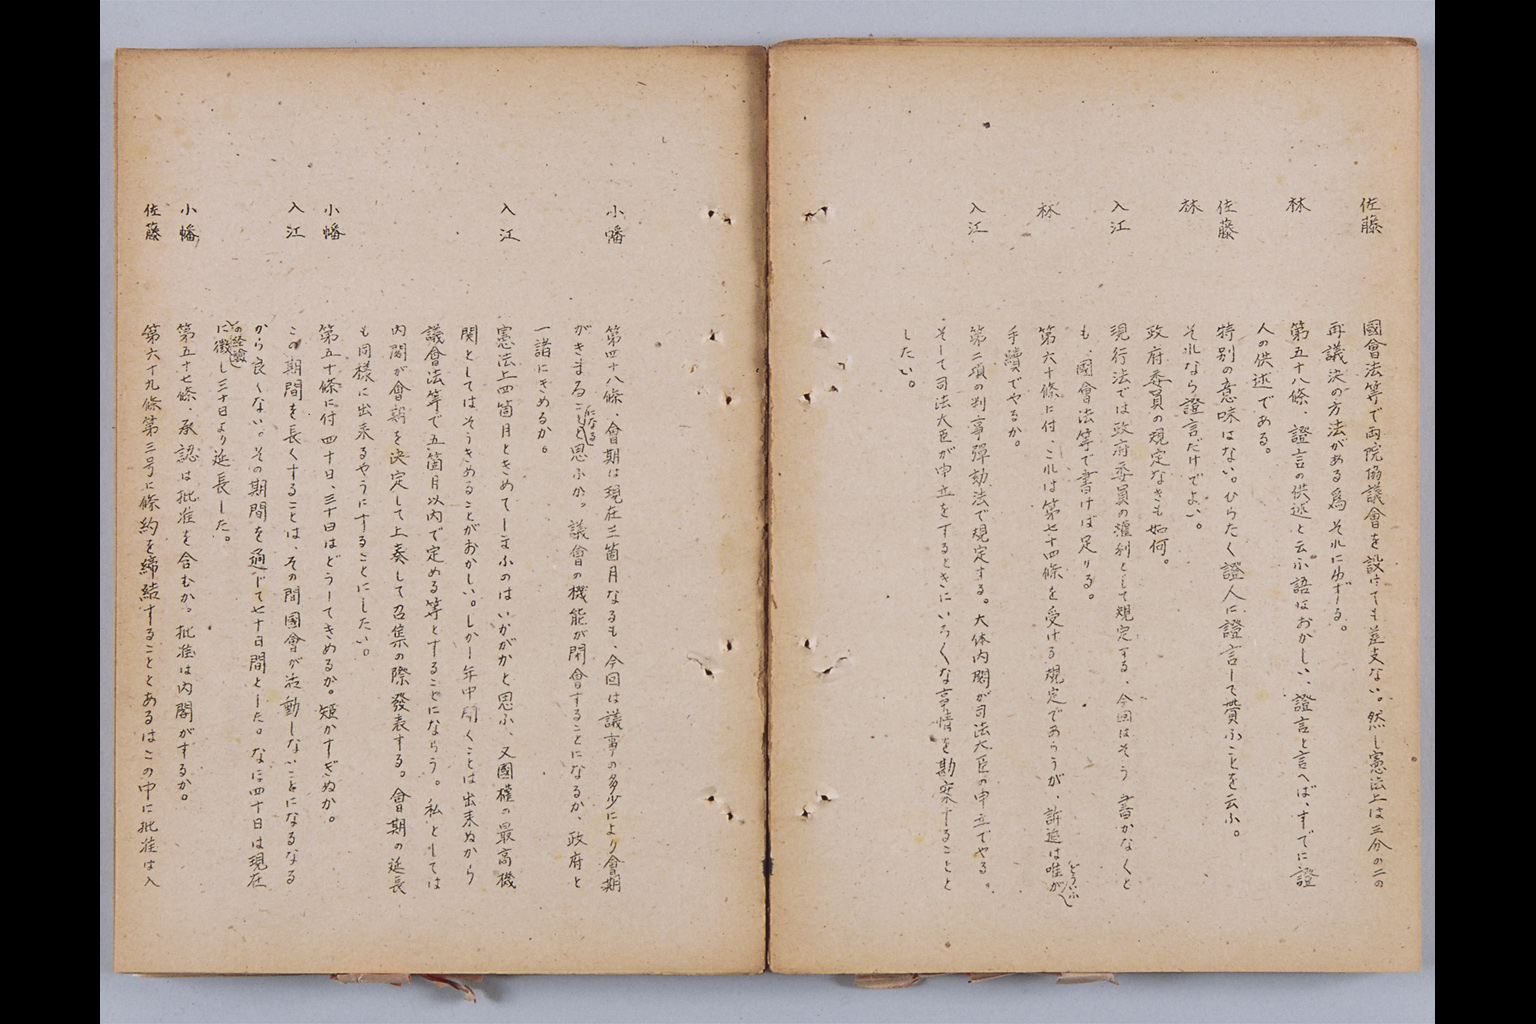 佐藤 國會法等で両院協議會を設けても差支ない。然し憲法上は三分の二の
再議決の方法がある爲それにゆずる。
林 第五十八條、證言の供述と云ふ語はおかしい、證言と言へば、すでに證
人の供述である。
佐藤 特別の意味はない。ひらたく證人に證言して貰ふことを云ふ。
林 それなら證言だけでよい。
政府委員の規定なきも如何。
入江 現行法では政府委員の權利として規定する、今回はそう書かなくと
も、國會法等で書けば足りる。
林 第六十條に付、これは第七十四條を受ける規定であらうが、訴追は唯が
どういふ
手續でやるか。
入江 第二項の判事彈劾法で規定する。大体内閣が司法大臣の申立でやる。
そして司法大臣が申立をするときにいろくな事情を勘案することと
したい。
小幡 第四十八條、會期は現在三箇月なるも、今回は議事の多少により會期
がきまることと思ふが。議會の機能が閉會することになるか、政府と
になる
一諸にきめるか。
入江 憲法上四箇月ときめてしまふのはいかがかと思ふ、又國權の最高機
関としてはそうきめることがおかしい。しかし年中開くことは出来ぬから
議會法等で五箇月以内で定める等とすることにならう。私としては
内閣が會期を決定して上奏して召集の際發表する。會期の延長
も同樣に出来るやうにすることにしたい。
小幡 第五十條に付四十日、三十日はどうしてきめるか。短かすぎぬか。
入江 この期間を長くすることは、その間國會が活動しないことになるなる
から良くない。その期間を通じて七十日間とした。なに四十日は現在
の経驗
に徴し三十日より延長した。
小幡 第五十七條、承認は批准を含むか。批准は内閣がするか。
佐藤 第六十九條第三号に條約を締結することとあるはこの中に批准は入